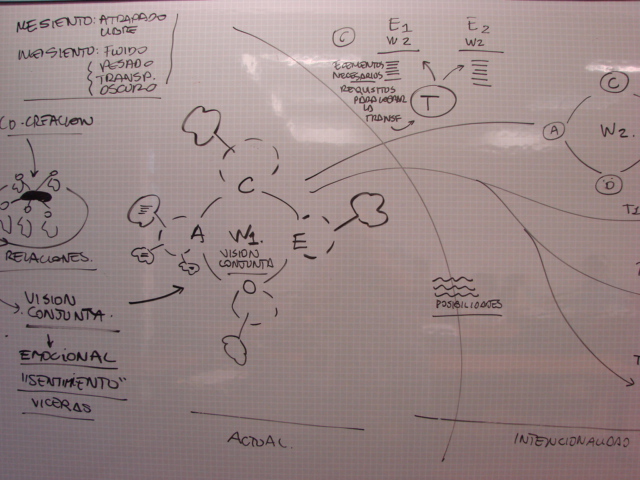 ME SIENTO: ATRAPADO
LIBRE
ME SIENTO: FLUIDO
PESADO
TRANSP.
OSCURO
CO-CREACION
RELACIONES.
VISION
CONJUNTA.
EMOCIONAL
"SENTIMIENTO"
VICERAS
C
A
W1.
E
VISION
CONJUNTA
O
ACTUAL.
C
E1
W2
E2
W2
ELEMENTOS
NECESARIOS
REQUISITOS
PARA LOGRAR
LA
TRANSF
T
C
A
W2.
D
T1
POSIBILIDADES
T
INTENCIONALIDAD